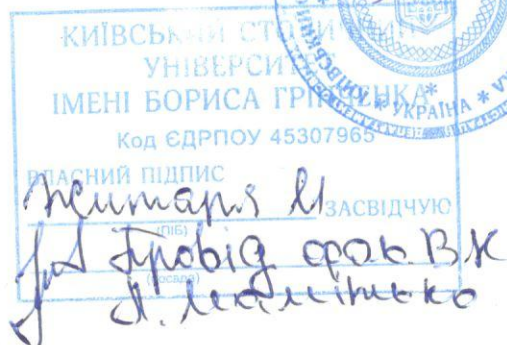 КИЇВСЬКИЙ СТОЛИЧНИЙ
УНІВЕРСИТЕТ
ІМЕНІ БОРИСА ГРІНЧЕНКА
* УКРАЇНА *
Код ЄДРПОУ 45307965
ВЛАСНИЙ ПІДПИС
Житаря
ЗАСВІДЧУЮ
(ПІБ)
Провід фах. ВК
(посада)